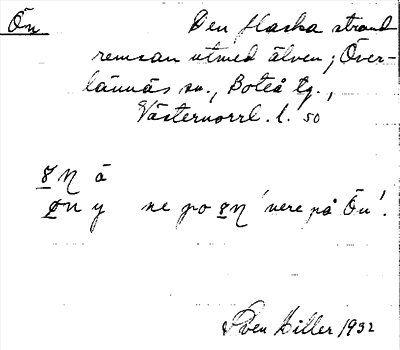 Ön Den flacka strand
remsan utmed älven; Över-
lännäs sn., Boteå tg.,
Västernorrl. l. 50
å
ne po 'nere på Ön'.
Sven Hiller 1932